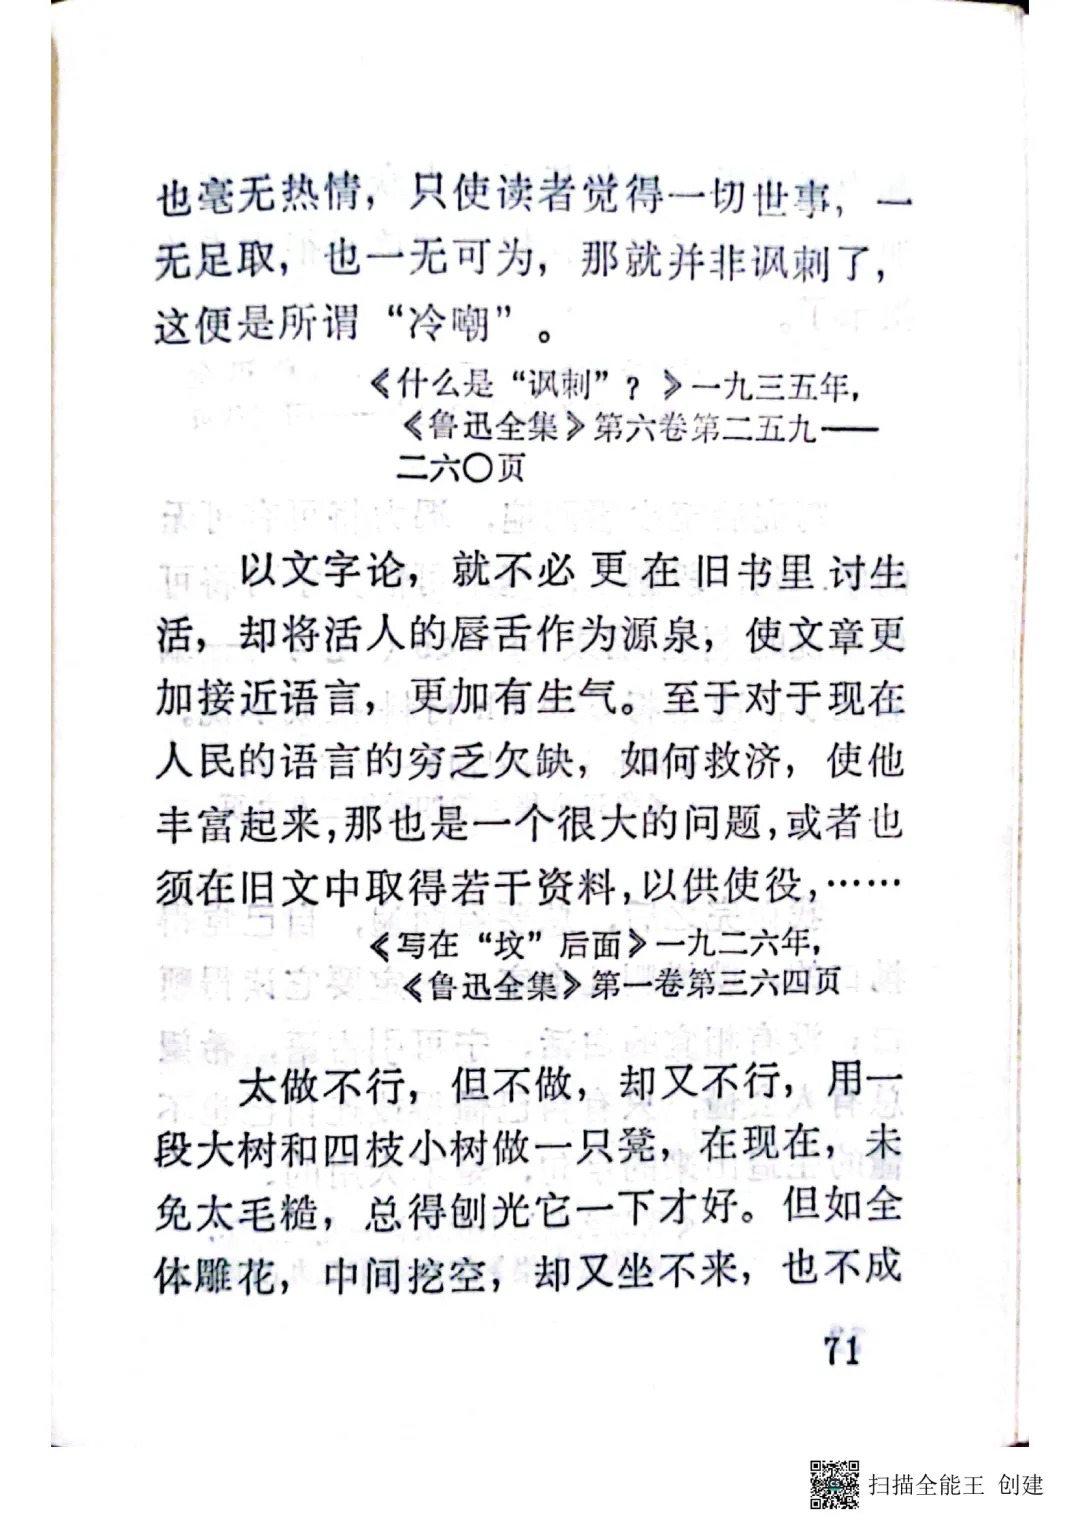 也毫无热情，只使读者觉得一切世事，一
无足取，也一无可为，那就并非讽刺了，
这便是所谓“冷嘲”。
《什么是“讽刺”？》一九三五年，
《鲁迅全集》第六卷第二五九——
二六〇页
以文字论，就不必更在旧书里讨生
活，却将活人的唇舌作为源泉，使文章更
加接近语言，更加有生气。至于对于现在
人民的语言的穷乏欠缺，如何救济，使他
丰富起来，那也是一个很大的问题，或者也
须在旧文中取得若干资料，以供使役，……
《写在“坟”后面》一九二六年，
《鲁迅全集》第一卷第三六四页
太做不行，但不做，却又不行，用一
段大树和四枝小树做一只凳，在现在，未
免太毛糙，总得刨光它一下才好。但如全
体雕花，中间挖空，却又坐不来，也不成
71
扫描全能王 创建